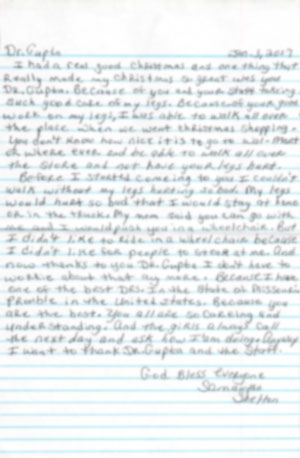 Dr. Gupta Jan. 3, 2017
I had a real good Christmas and one thing that
really made my Christmas so great was you
Dr. Gupta. Because of you and your staff taking
such good care of my legs. Because of your good
work on my legs, I was able to walk all over
the place when we went Christmas shopping.
You don't know how nice it is to go to Wal-Mart
or where ever and be able to walk all over
the store and not have your legs hurt.
Before I started coming to you I couldn't
walk without my legs hurting so bad. My legs
would hurt so bad that I would stay at home
or in the truck. My mom said you can go with
me and I would push you in a wheelchair. But
I didn't like to ride in a wheelchair because
I didn't like for people to stare at me. And
now thanks to you Dr. Gupta I don't have to
worrie about that any more. Because I have
one of the best DRS. in the State of Missouri
Prubble in the United States. Because you
are the best. You all are so careing and
understanding. And the girls always call
the next day and ask how I am doing. Anyway
I want to thank Dr. Gupta and the Staff.
God Bless everyone
Shelton